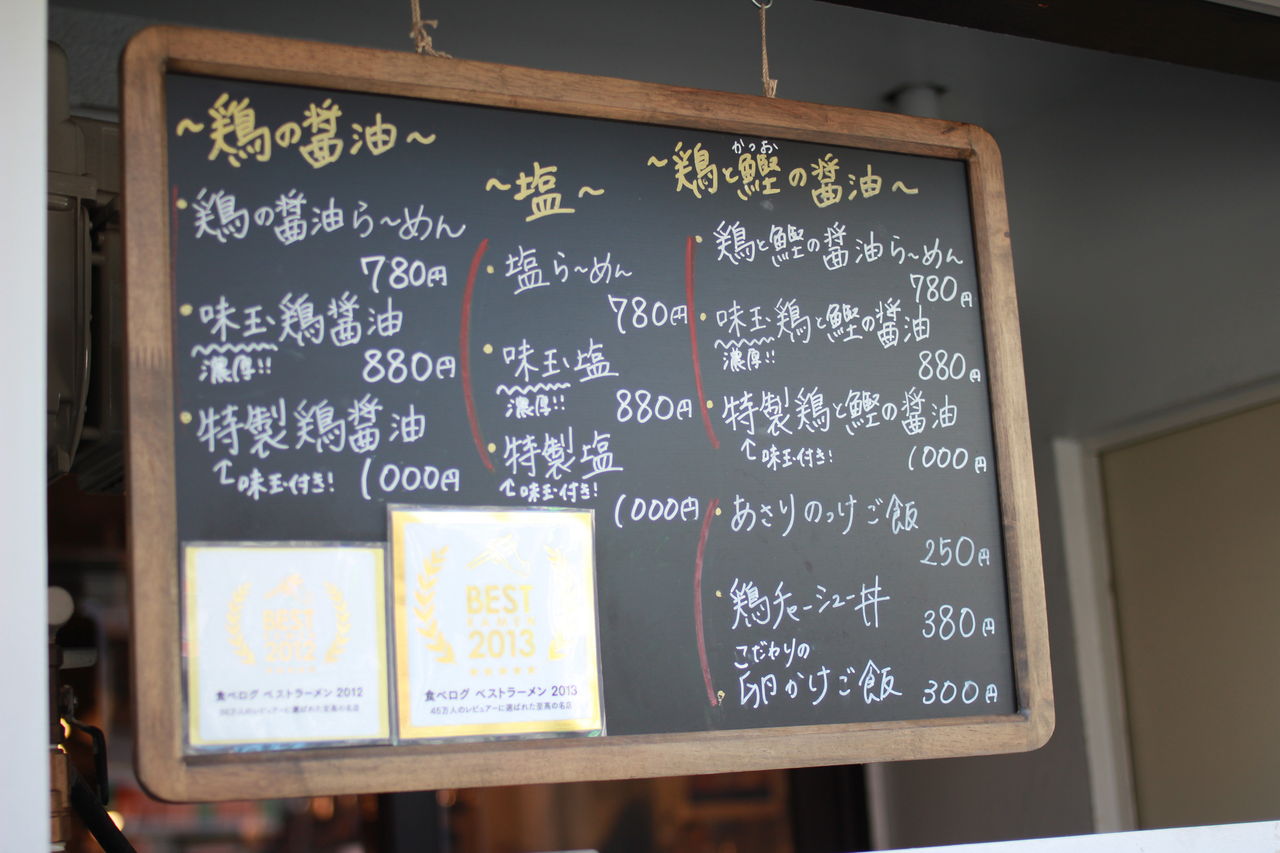 〜鶏の醤油〜
鶏の醤油ら〜めん
780円
味玉鶏醤油
濃厚!!
880円
特製鶏醤油
味玉付き!
1000円
〜塩〜
塩ら〜めん
780円
味玉塩
濃厚!!
880円
特製塩
味玉付き!
1000円
かつお
〜鶏と鰹の醤油〜
鶏と鰹の醤油ら〜めん
780円
味玉鶏と鰹の醤油
濃厚!!
880円
特製鶏と鰹の醤油
味玉付き!
1000円
あさりのっけご飯
250円
鶏チャーシュー丼
380円
こだわりの
卵かけご飯 300円
BEST
RAMEN
2012
食べログ ベストラーメン 2012
万人のレビュアーに選ばれた至高の名店
BEST
RAMEN
2013
食べログ ベストラーメン 2013
45万人のレビュアーに選ばれた至高の名店